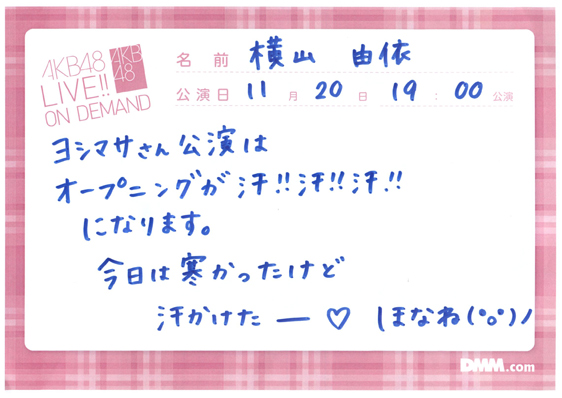 AKB48
LIVE!!
ON DEMAND
AKB
48
名前 横山 由依
公演日 11月20日 19:00公演
ヨシマサさん公演は
オープニングが汗!!汗!!汗!!
になります。
今日は寒かったけど
汗かけたー♡ ほなね(°o°)ノ
DMM.com